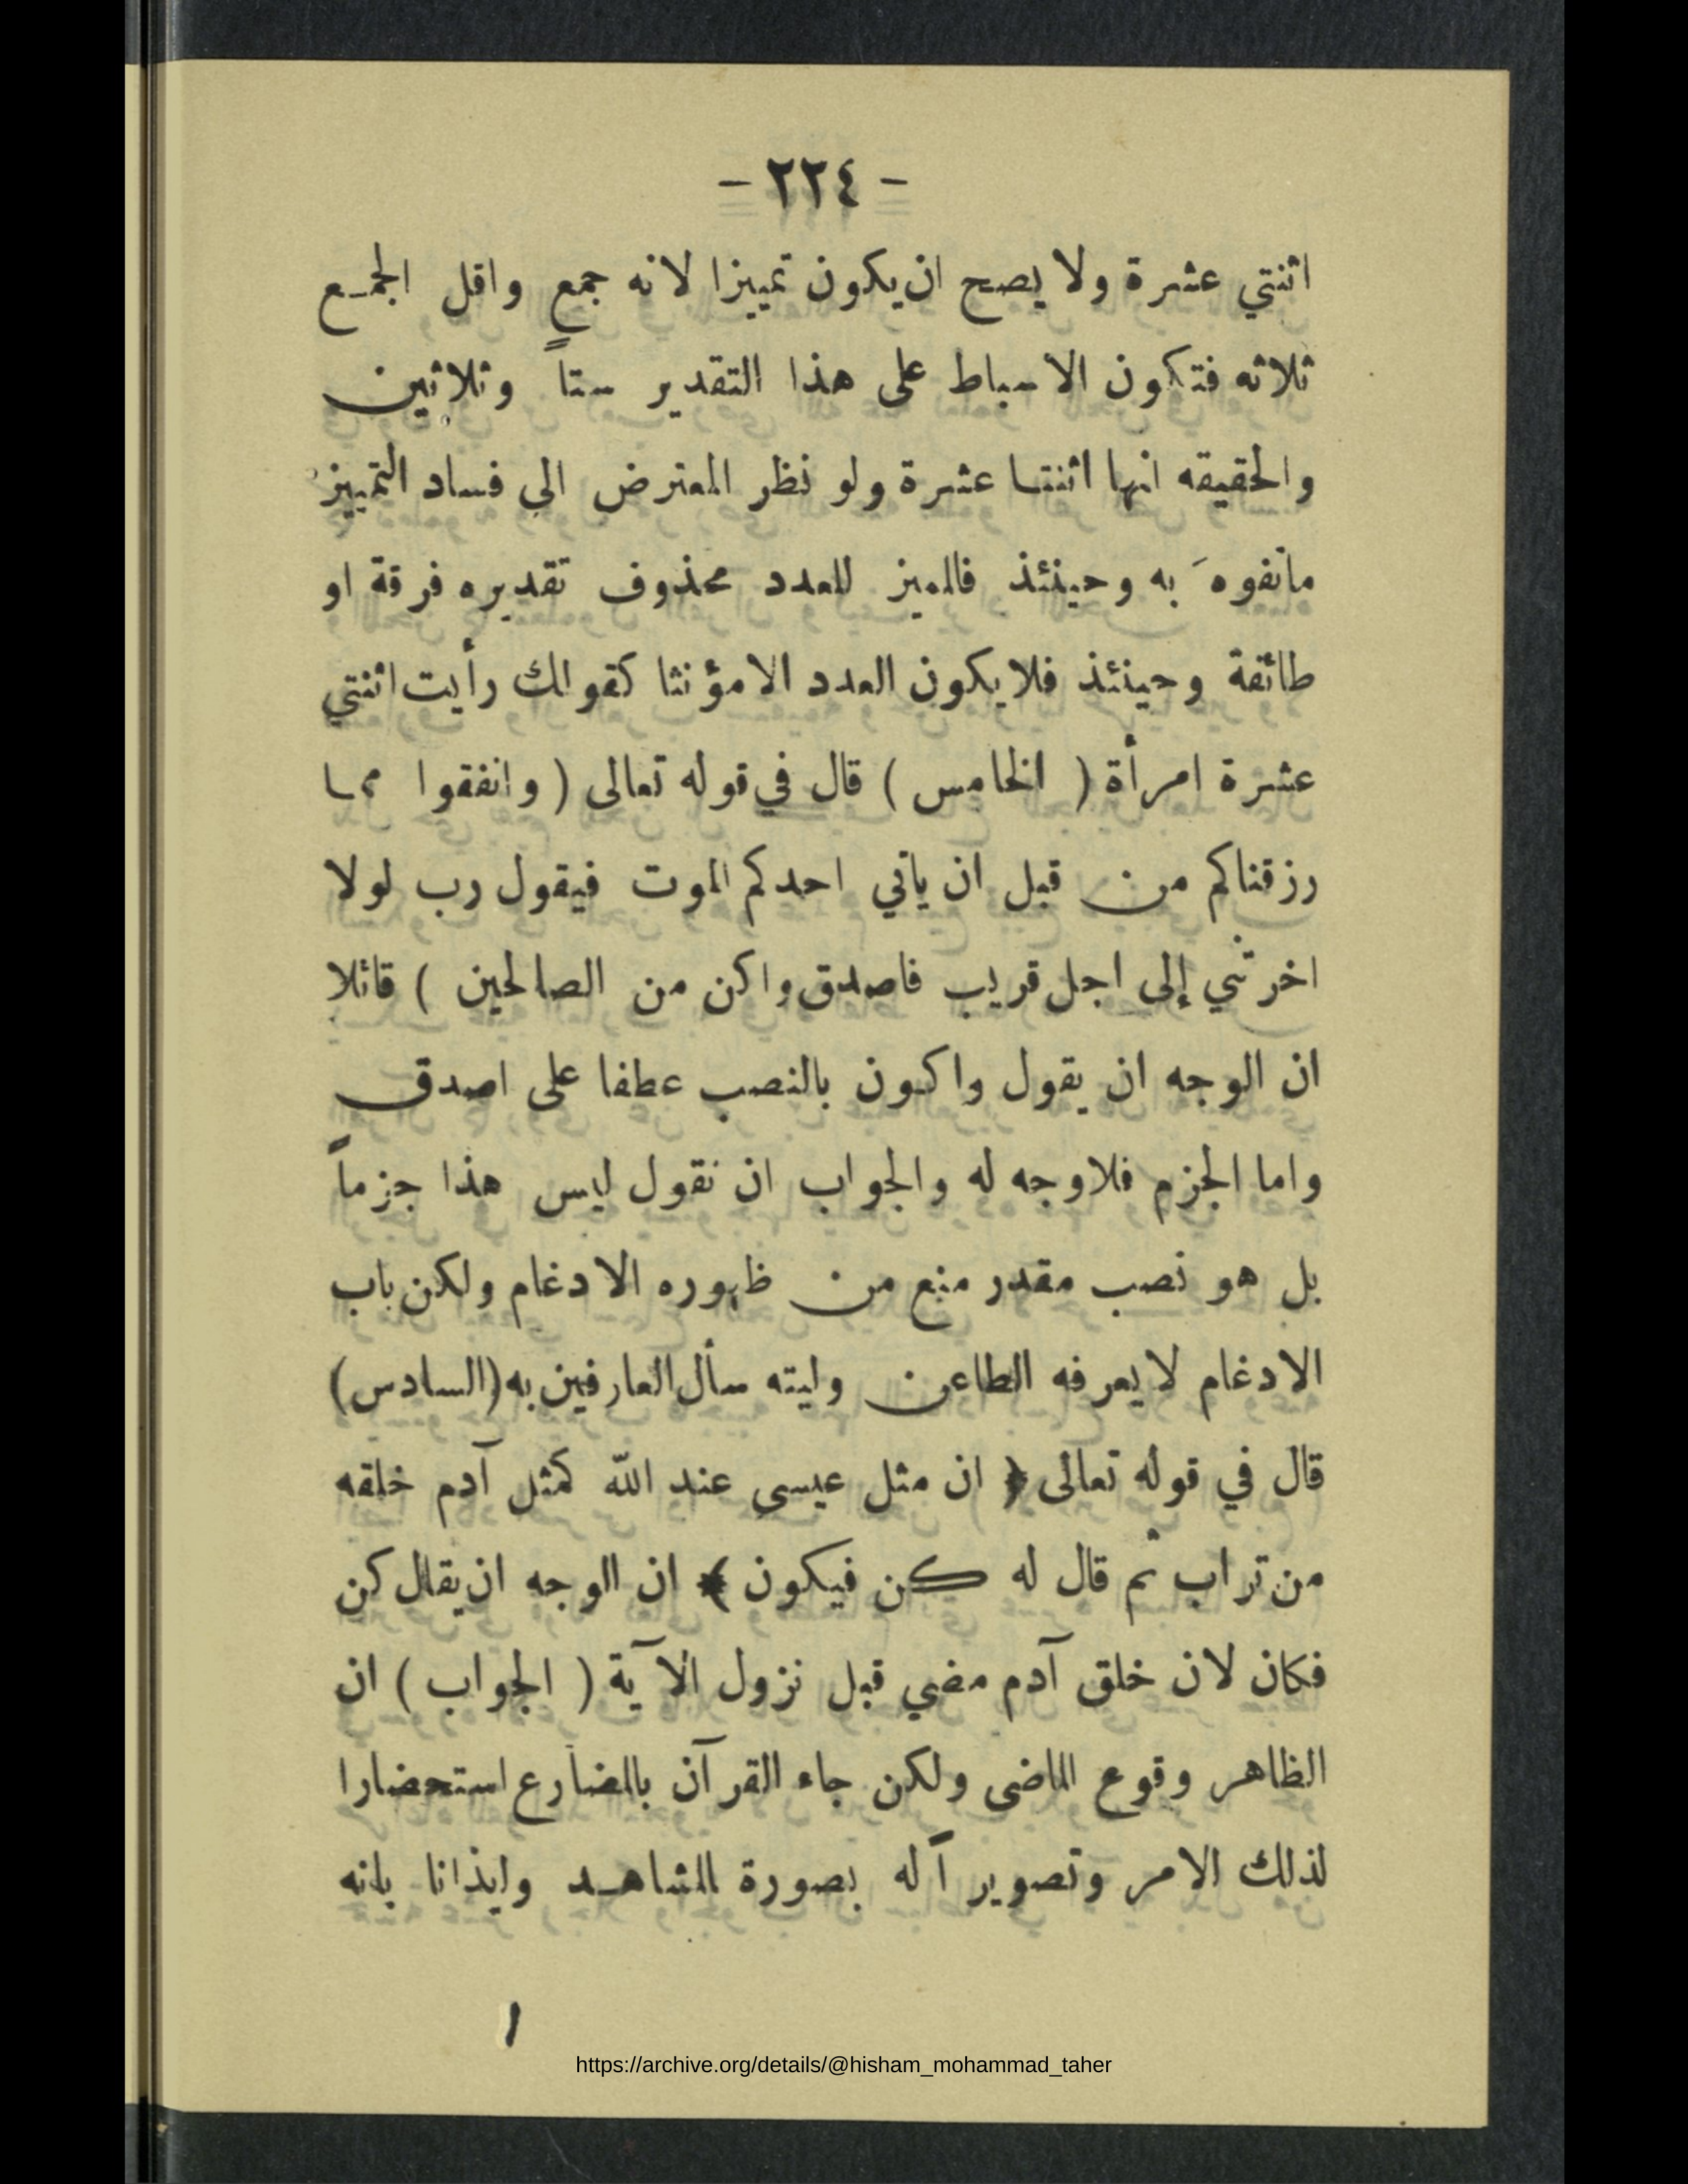 - ٢٢٤ -
اثنتي عشرة ولا يصح ان يكون تمييزا لانه جمع واقل الجمع
ثلاثه فتكون الاسباط على هذا التقدير ستاً وثلاثين
والحقيقه انها اثنتا عشرة ولو نظر المعترض الى فساد التمييز
ماتفوهَ به وحينئذ فالميز للعدد محذوف تقديره فرقة او
طائفة وحينئذ فلا يكون العدد الا مؤنثا كقولك رأيت اثنتي
عشرة امرأة ( الخامس ) قال في قوله تعالى ( وانفقوا مما
رزقناكم من قبل ان ياتي احدكم الموت فيقول رب لولا
اخرتني إلى اجل قريب فاصدق واكن من الصالحين ) قائلا
ان الوجه ان يقول واكون بالنصب عطفا على اصدق
واما الجزم فلا وجه له والجواب ان نقول ليس هذا جزماً
بل هو نصب مقدر منع من ظهوره الادغام ولكن باب
الادغام لا يعرفه الطاعن وليته سأل العارفين به (السادس)
قال في قوله تعالى ﴿ ان مثل عيسى عند الله كمثل آدم خلقه
من تراب ثم قال له كن فيكون ﴾ ان الوجه ان يقال كن
فكان لان خلق آدم مضي قبل نزول الآية ( الجواب ) ان
الظاهر وقوع الماضى ولكن جاء القرآن بالمضارع استحضارا
لذلك الامر وتصوير آ له بصورة المشاهد وايذانا بانه
١
https://archive.org/details/@hisham_mohammad_taher